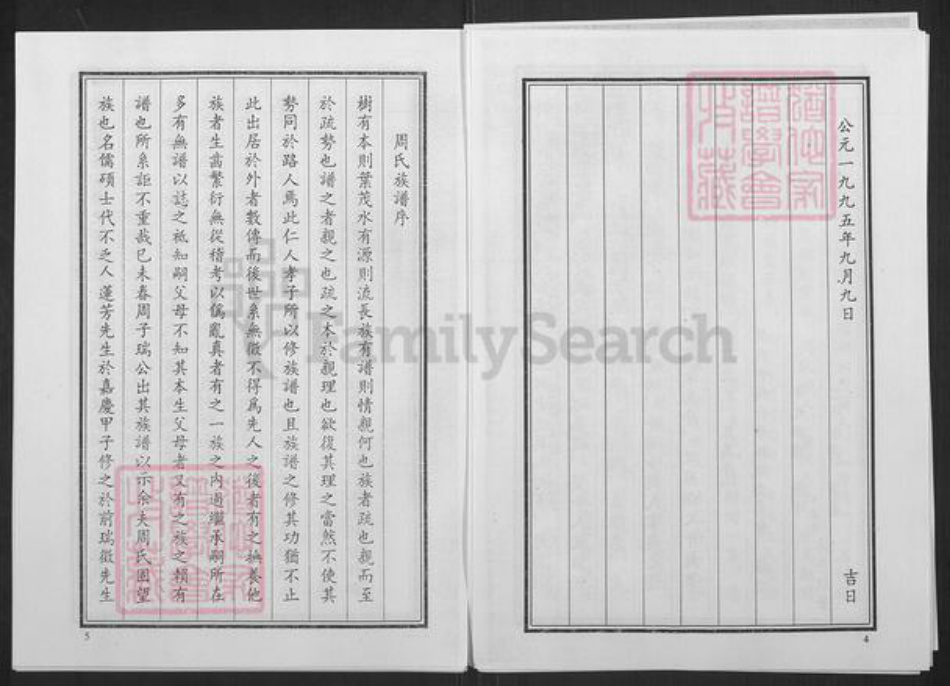 公元一九九五年九月九日
吉日
4
周氏族譜序
樹有本則葉茂水有源則流長族有譜則情親何也族者疏也親而至
於疏勢也譜之者親之也疏之本於親理也欲復其理之當然不使其
勢同於路人焉此仁人孝子所以修族譜也且族譜之修其功猶不止
此出居於外者數傳而後世系無徵不得爲先人之後者有之撫養他
族者生齒繁衍無從稽考以僞亂真者有之一族之內過繼承嗣所在
多有無譜以誌之祗知嗣父母不知其本生父母者又有之族之賴有
譜也所系詎不重哉已未春周子瑞公出其族譜以示余夫周氏固望
族也名儒碩士代不乏人蓮芳先生於嘉慶甲子修之於前瑞徵先生
5
FamilySearch